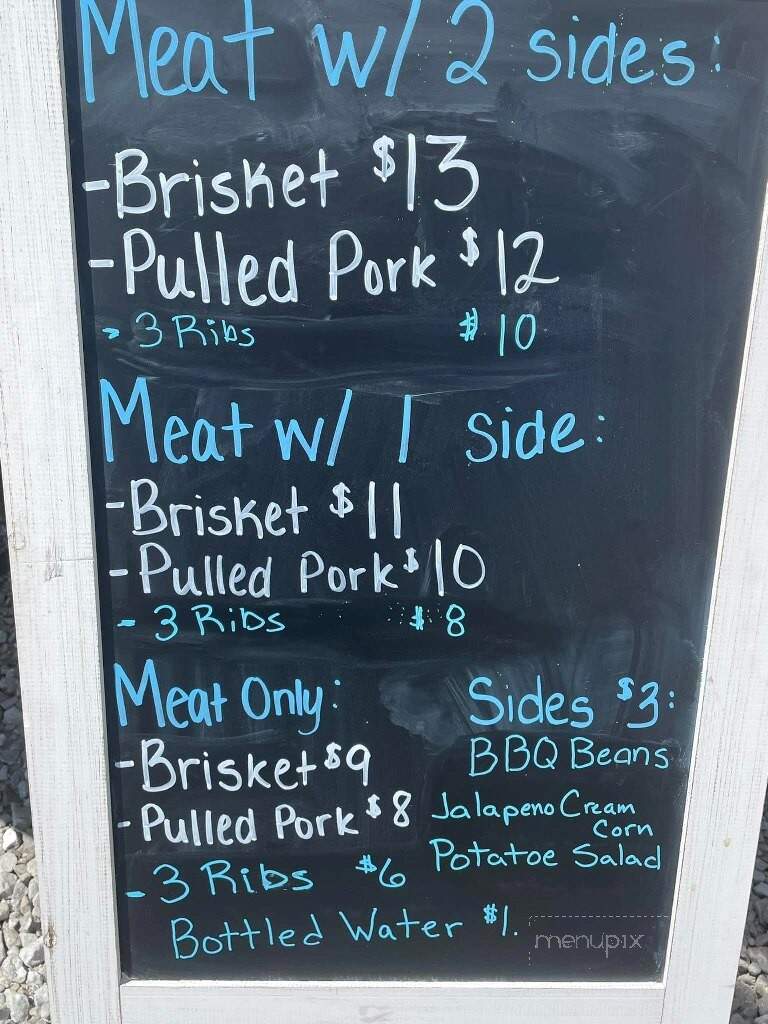 Meat w/ 2 sides:
-Brisket $13
-Pulled Pork $12
- 3 Ribs $10
Meat w/ 1 side:
-Brisket $11
-Pulled Pork $10
- 3 Ribs $8
Meat Only:
-Brisket $9
-Pulled Pork $8
- 3 Ribs $6
Sides $3:
BBQ Beans
Jalapeno Cream
Corn
Potatoe Salad
Bottled Water $1.
menupix